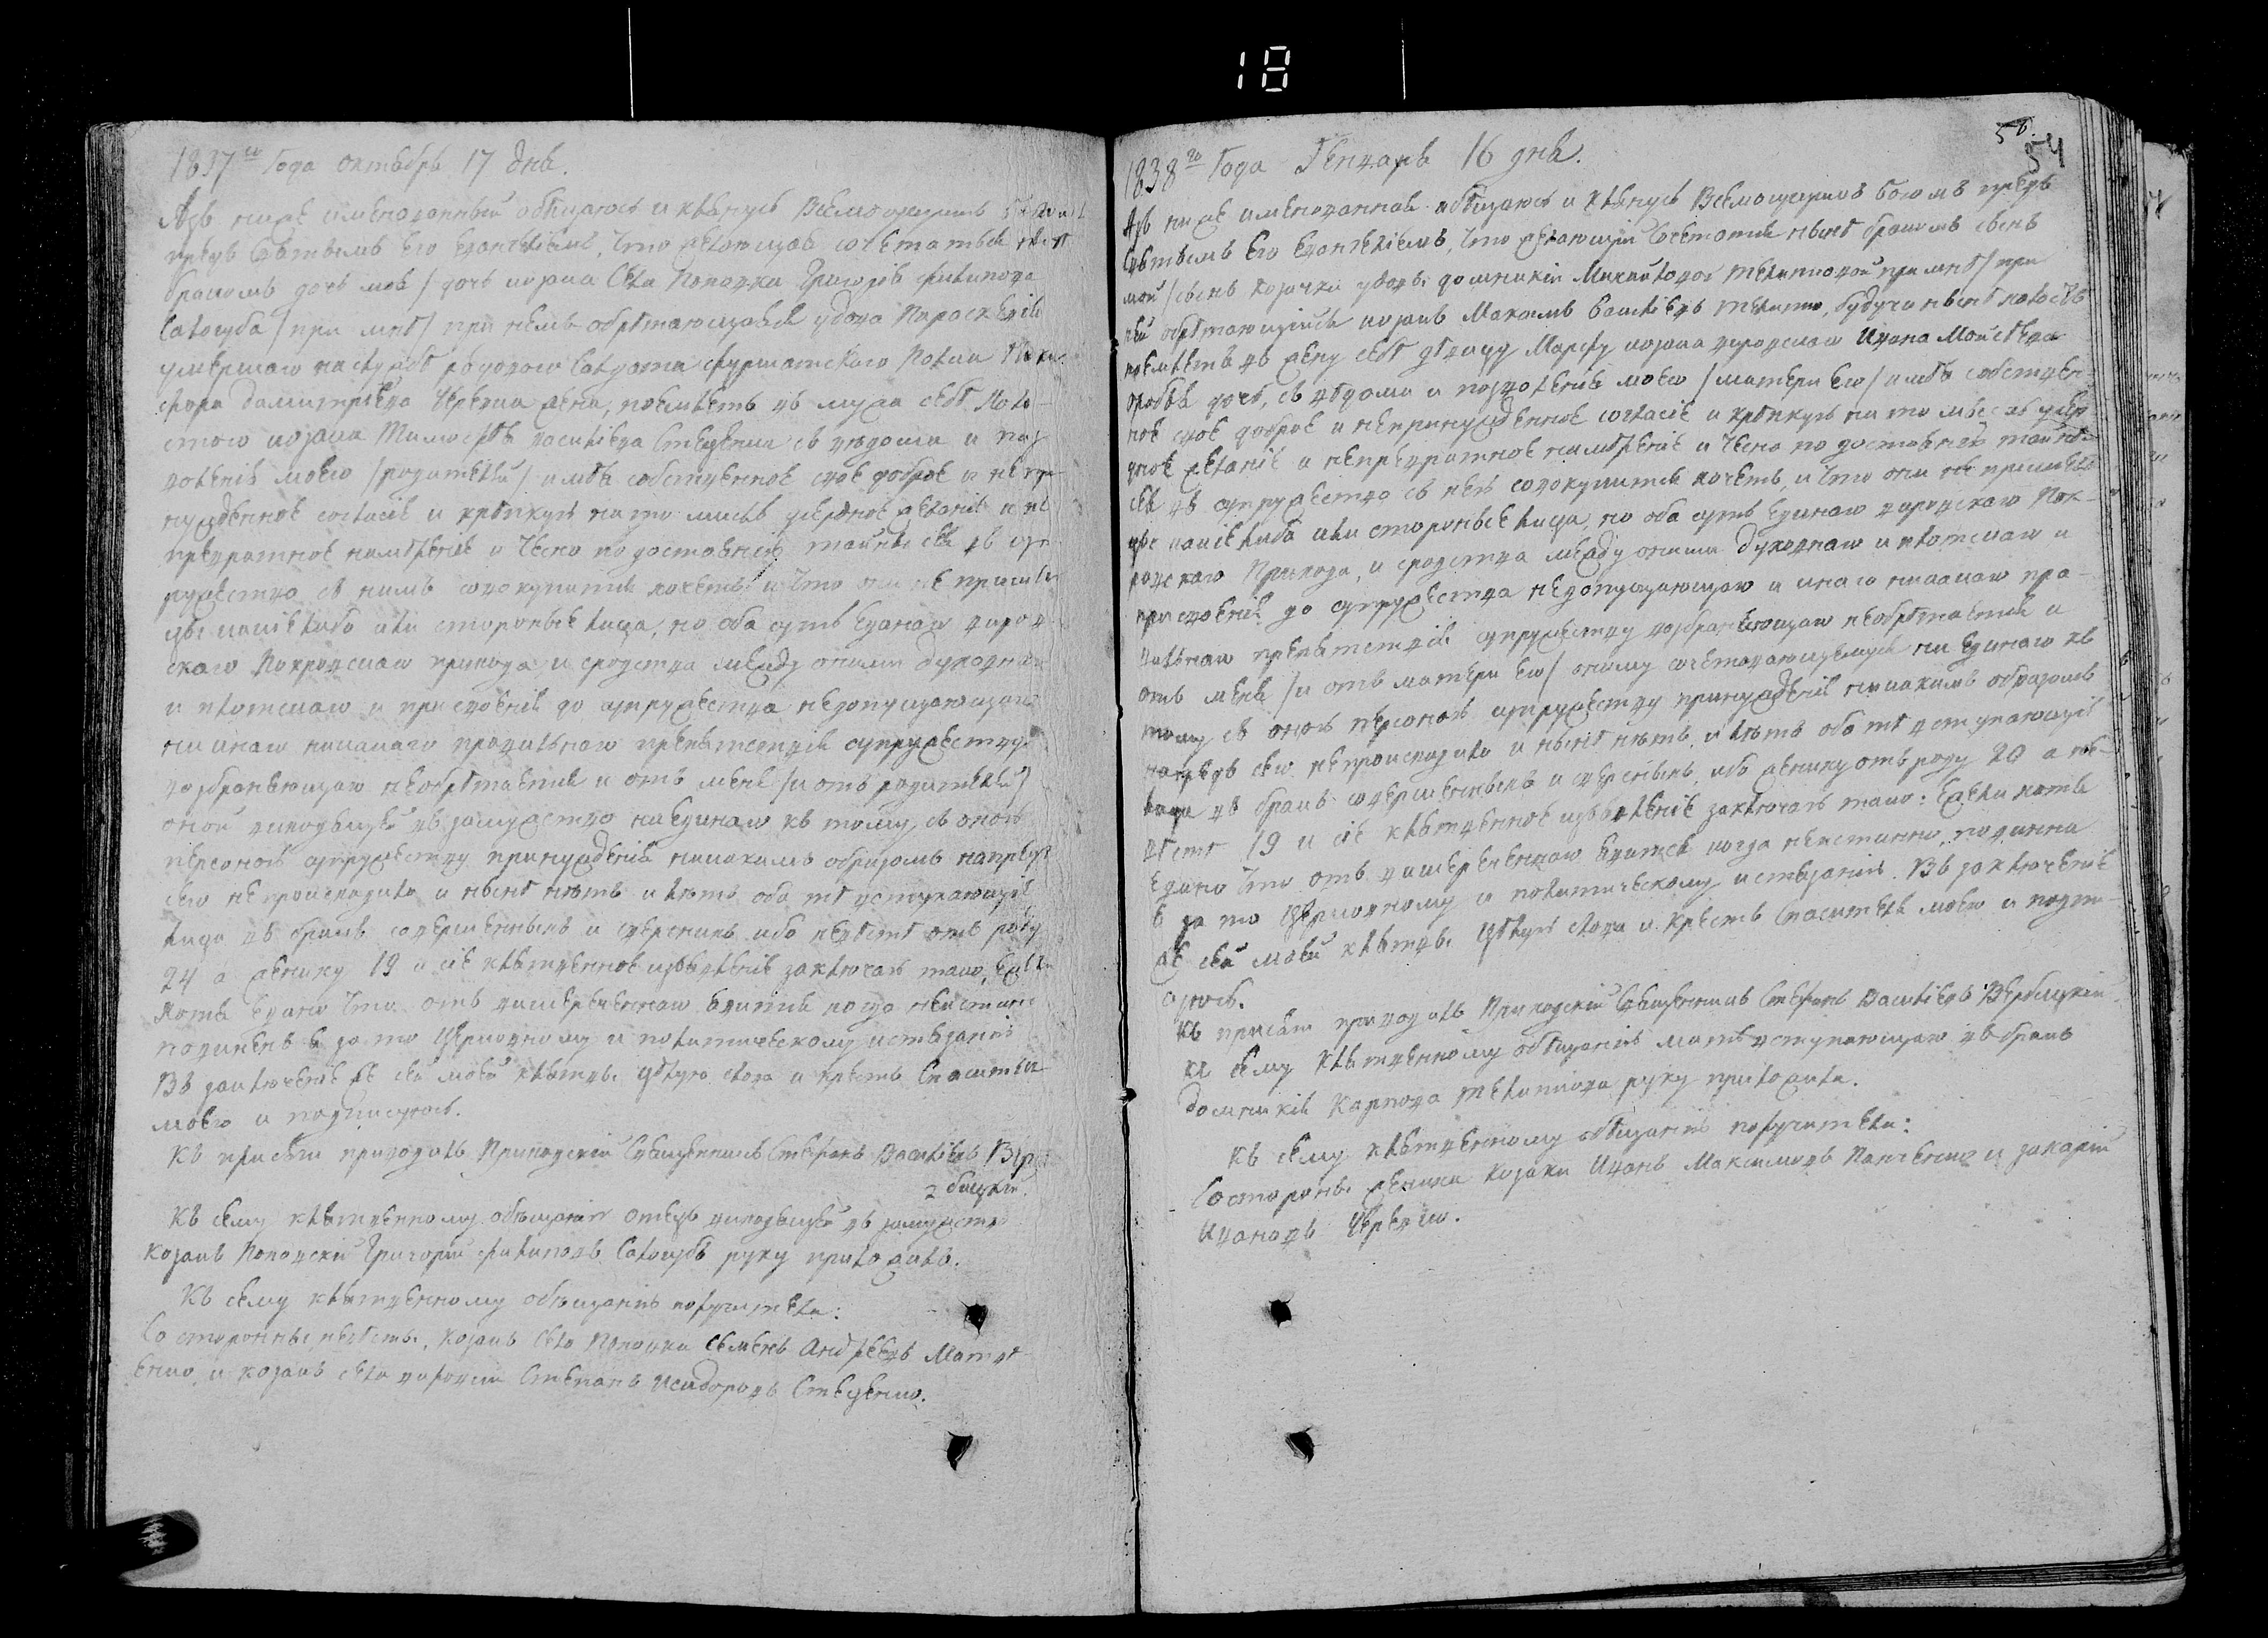 18
1837го Года октября 17 дня.
Азъ ниже именованный обѣщаюсь и клянусь Всемогущимъ Богомъ
предъ Святымъ Его Евангеліемъ, что желающая сочетатися нынѣ
бракомъ дочь моя / дочь козака села Поповки Григорія Филипова
Салогуба / при мнѣ / при немъ обрѣтающаяся вдова Параскевія
умершаго
жена, поемлетъ въ мужа себѣ холо-
стого козака Тимофѣя Василіева Стеценка съ вѣдома и поз-
воленія моего / родителей / имѣя собственное свое доброе и непри-
нужденное согласіе и крѣпкую на то мысль усердное желаніе и не
превратное намѣреніе и чесно по достоянію тайны сея въ суп-
ружество съ нимъ совокупитися хочетъ и что они не пришел-
цы каковіе либо или сторонніе лица, но оба суть единаго
скаго Покровскаго прихода, и сродства между оними духовнаго
и плотскаго и присвоенія до супружества недопущающаго
ни инаго никакого правильнаго препятствія супружеству
возбраняющаго необрѣтается и отъ мене / и отъ родителей /
оной выходящей въ замужство ни единаго къ тому съ оною
персоною супружеству принужденія никакимъ образомъ напредъ
сего не происходило и нынѣ нѣтъ и лѣтъ оба тѣ вступающіе
лица въ бракъ совершенныхъ и сверсныхъ ибо невѣстѣ отъ роду
24 а жениху 19 и сіе клятвенное извѣщеніе заключаю тако, ежели
хотя едино что отъ вишереченнаго явится когда неистинно
повиненъ я за то церковному и политическому истязанію
Въ заключеніе же сей моей клятвы цѣлую слова и крестъ Спасителя
моего и подписуюсь.
Къ присяги приводилъ Приходскій Священникъ Стефанъ Василіевъ Вер-
бицкій.
Къ сему клятвенному обѣщанію отецъ выходящей въ замужство
козакъ Поповскій Григорій Филиповъ Салогубъ руку приложилъ.
Къ сему клятвенному обѣщанію поручители:
Со стороны невѣсты, козакъ села Поповки Семенъ Андреевъ Матвѣ-
енко и козакъ села Стефанъ Исидоровъ Стеценко.
54
1838го Года Генваря 16 дня.
Азъ ниже именованная обѣщаюсь и клянусь Всемогущимъ Богомъ предъ
Святымъ Его Евангеліемъ, что желающій сочетатися нынѣ бракомъ сынъ
мой / сынъ козачки удовы Домникіи при мнѣ / при
ней обрѣтающійся козакъ Максимъ будучи нынѣ холостъ
поемлетъ въ жену себѣ дѣвицу Марфу козака Ивана Моисеева
дочь, съ вѣдома и позволенія моего / матери его / имѣя собствен-
ное свое доброе и непринужденное согласіе и крѣпкую на то мысль усер-
дное желаніе и непревратное намѣреніе и чесно по достоянію тайны
сея въ супружество съ нею совокупитися хочетъ, и что они не пришел-
цы какіе либо или сторонніе лица, но оба суть единаго Пок-
ровскаго Прихода, и сродства между оними духовнаго и плотскаго и
присвоенія до супружества недопущающаго и инаго никакого пра-
вильнаго препятствія супружеству возбраняющаго необрѣтается и
отъ мене / и отъ матери его / оному сочетавающемуся ни единаго къ
тому съ оною персоною супружеству принужденія никакимъ образомъ
напредъ сего не происходило и нынѣ нѣтъ и лѣтъ оба тѣ вступающіе
лица въ бракъ совершенныхъ и сверсныхъ ибо жениху отъ роду 20 а не-
вѣстѣ 19 и сіе клятвенное извѣщеніе заключаю тако: ежели хотя
едино что отъ вишереченнаго явится когда неистинно, повинна
я за то церковному и политическому истязанію. Въ заключеніе
же сей моей клятвы цѣлую слова и Крестъ Спасителя моего и подпи-
суюсь.
Къ присяги приводилъ Приходскій Священникъ Стефанъ Василіевъ Вербицкій.
Къ сему клятвенному обѣщанію мать вступающаго въ бракъ
Домникія Карпова руку приложила.
Къ сему клятвенному обѣщанію поручители:
Со стороны жениха козаки Иванъ Максимовъ Панченко и Захарій
Ивановъ Черевко.